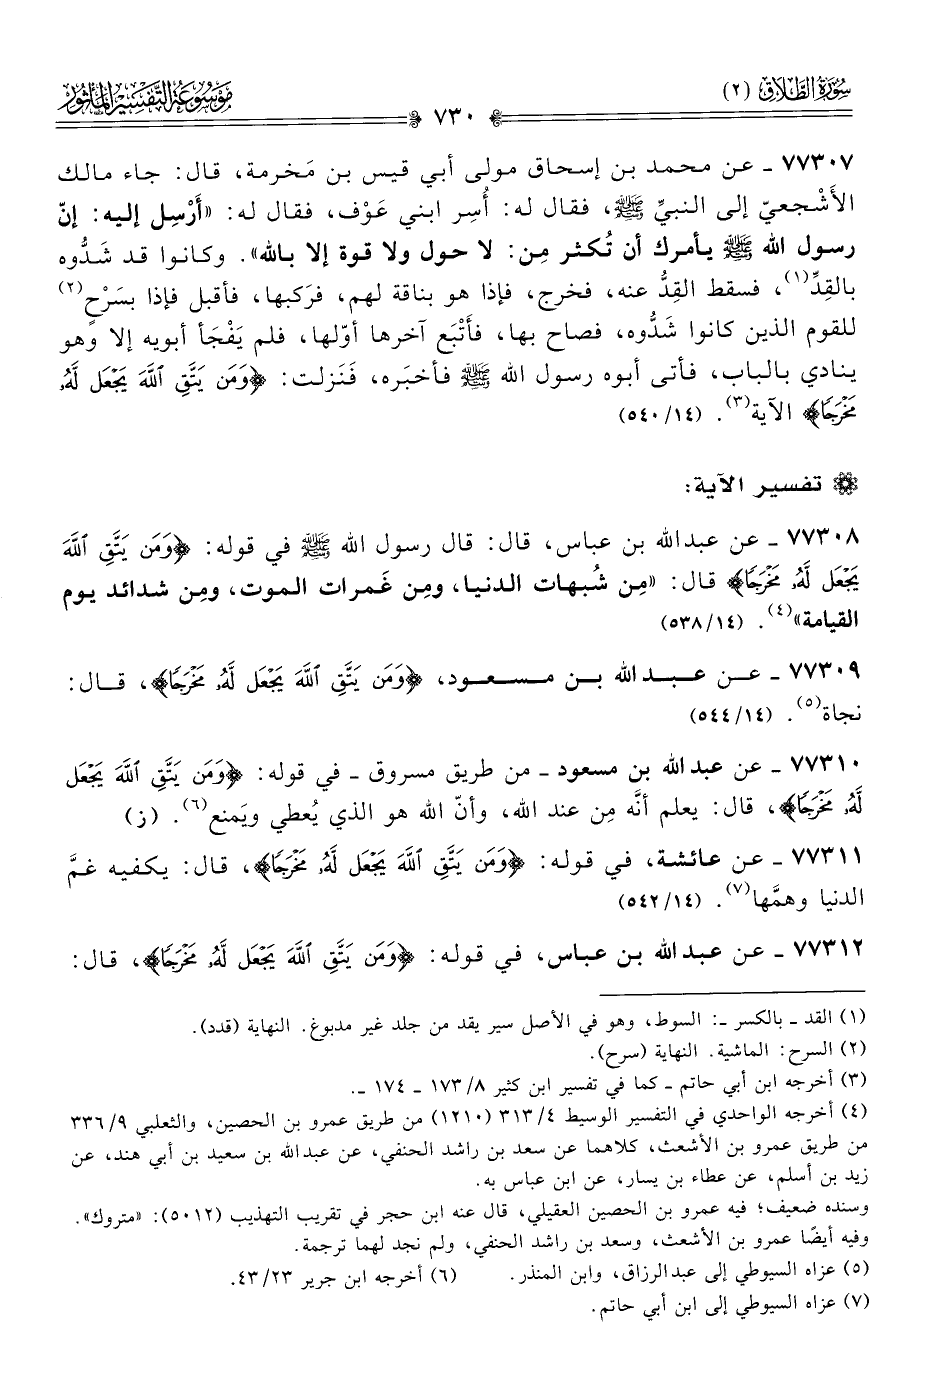 سُورَةُ الطَّلَاق (٢)
٧٣٠
مَوْسُوعَةُ التَّفْسِيرِ المَأْثُور
٧٧٣٠٧ ـ عن محمد بن إسحاق مولى أبي قيس بن مَخرمة، قال: جاء مالك
الأَشْجعيّ إلى النبيِّ ﷺ، فقال له: أُسِر ابني عَوْف، فقال له: «أَرْسِل إليه: إنّ
رسول الله ﷺ يأمرك أن تُكثر مِن: لا حول ولا قوة إلا بالله». وكانوا قد شَدُّوه
بالقِدِّ(١)، فسقط القِدُّ عنه، فخرج، فإذا هو بناقة لهم، فرَكبها، فأقبل فإذا بسَرْحٍ(٢)
للقوم الذين كانوا شَدُّوه، فصاح بها، فأَتْبَع آخرها أوّلها، فلم يَفْجَأ أبويه إلا وهو
ينادي بالباب، فأتى أبوه رسول الله ﷺ فأخبَره، فَنَزلت: ﴿وَمَن يَتَّقِ ٱللَّهَ يَجْعَل لَّهُۥ
مَخْرَجًا﴾ الآية(٣). (٥٤٠/١٤)
❁ تفسير الآية:
٧٧٣٠٨ ـ عن عبدالله بن عباس، قال: قال رسول الله ﷺ في قوله: ﴿وَمَن يَتَّقِ ٱللَّهَ
يَجْعَل لَّهُۥ مَخْرَجًا﴾ قال: «مِن شُبهات الدنيا، ومِن غَمرات الموت، ومِن شدائد يوم
القيامة»(٤). (٥٣٨/١٤)
٧٧٣٠٩ ـ عن عبدالله بن مسعود، ﴿وَمَن يَتَّقِ ٱللَّهَ يَجْعَل لَّهُۥ مَخْرَجًا﴾، قال:
نجاة(٥). (٥٤٤/١٤)
٧٧٣١٠ ـ عن عبدالله بن مسعود ـ من طريق مسروق ـ في قوله: ﴿وَمَن يَتَّقِ ٱللَّهَ يَجْعَل
لَّهُۥ مَخْرَجًا﴾، قال: يعلم أنَّه مِن عند الله، وأنّ الله هو الذي يُعطي ويَمنع(٦). (ز)
٧٧٣١١ ـ عن عائشة، في قوله: ﴿وَمَن يَتَّقِ ٱللَّهَ يَجْعَل لَّهُۥ مَخْرَجًا﴾، قال: يكفيه غمَّ
الدنيا وهمَّها(٧). (٥٤٢/١٤)
٧٧٣١٢ ـ عن عبدالله بن عباس، في قوله: ﴿وَمَن يَتَّقِ ٱللَّهَ يَجْعَل لَّهُۥ مَخْرَجًا﴾، قال:
(١) القد ـ بالكسر ـ: السوط، وهو في الأصل سير يقد من جلد غير مدبوغ. النهاية (قدد).
(٢) السرح: الماشية. النهاية (سرح).
(٣) أخرجه ابن أبي حاتم ـ كما في تفسير ابن كثير ٨/ ١٧٣ ـ ١٧٤ ـ.
(٤) أخرجه الواحدي في التفسير الوسيط ٤/ ٣١٣ (١٢١٠) من طريق عمرو بن الحصين، والثعلبي ٩/ ٣٣٦
من طريق عمرو بن الأشعث، كلاهما عن سعد بن راشد الحنفي، عن عبدالله بن سعيد بن أبي هند، عن
زيد بن أسلم، عن عطاء بن يسار، عن ابن عباس به.
وسنده ضعيف؛ فيه عمرو بن الحصين العقيلي، قال عنه ابن حجر في تقريب التهذيب (٥٠١٢): «متروك».
وفيه أيضًا عمرو بن الأشعث، وسعد بن راشد الحنفي، ولم نجد لهما ترجمة.
(٥) عزاه السيوطي إلى عبدالرزاق، وابن المنذر. (٦) أخرجه ابن جرير ٢٣/ ٤٣.
(٧) عزاه السيوطي إلى ابن أبي حاتم.